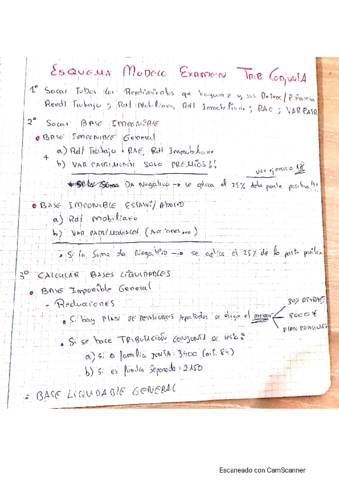 ESQUEMA MODELO EXAMEN TRIB CONJUNTA
1º Sacar todos los Rendimientos que tengamos y sus
Rend Trabajo ; Rdt Mobiliario, Rdt Inmobiliario ; RAE ; VAR PATR
2º Sacar BASE IMPONIBLE
BASE IMPONIBLE General
a) Rdt Trabajo + RAE, Rdt Inmobiliario
+
b) VAR PATRIMONIAL SOLO PREMIOS!!
ver ejercicio 18
Si la Suma DA Negativo → se aplica el 25% de la parte positiva
BASE IMPONIBLE
a) Rdt mobiliario
b) VAR PATRIMONIALES (Acciones...)
Si la Suma da Negativo → se aplica el 25% de la parte positiva
3º CALCULAR BASES LIQUIDABLES
BASE Imponible General
- Reducciones
Si hay PLAN DE PENSIONES Aportados se elige el menor
8000 €
PLAN PENSIONES
Si se hace TRIBUTACIÓN CONJUNTA se resta:
a) si es familia JUNTA: 3400 (art. 84)
b) si es familia Separada: 2150
= BASE LIQUIDABLE GENERAL
Escaneado con CamScanner